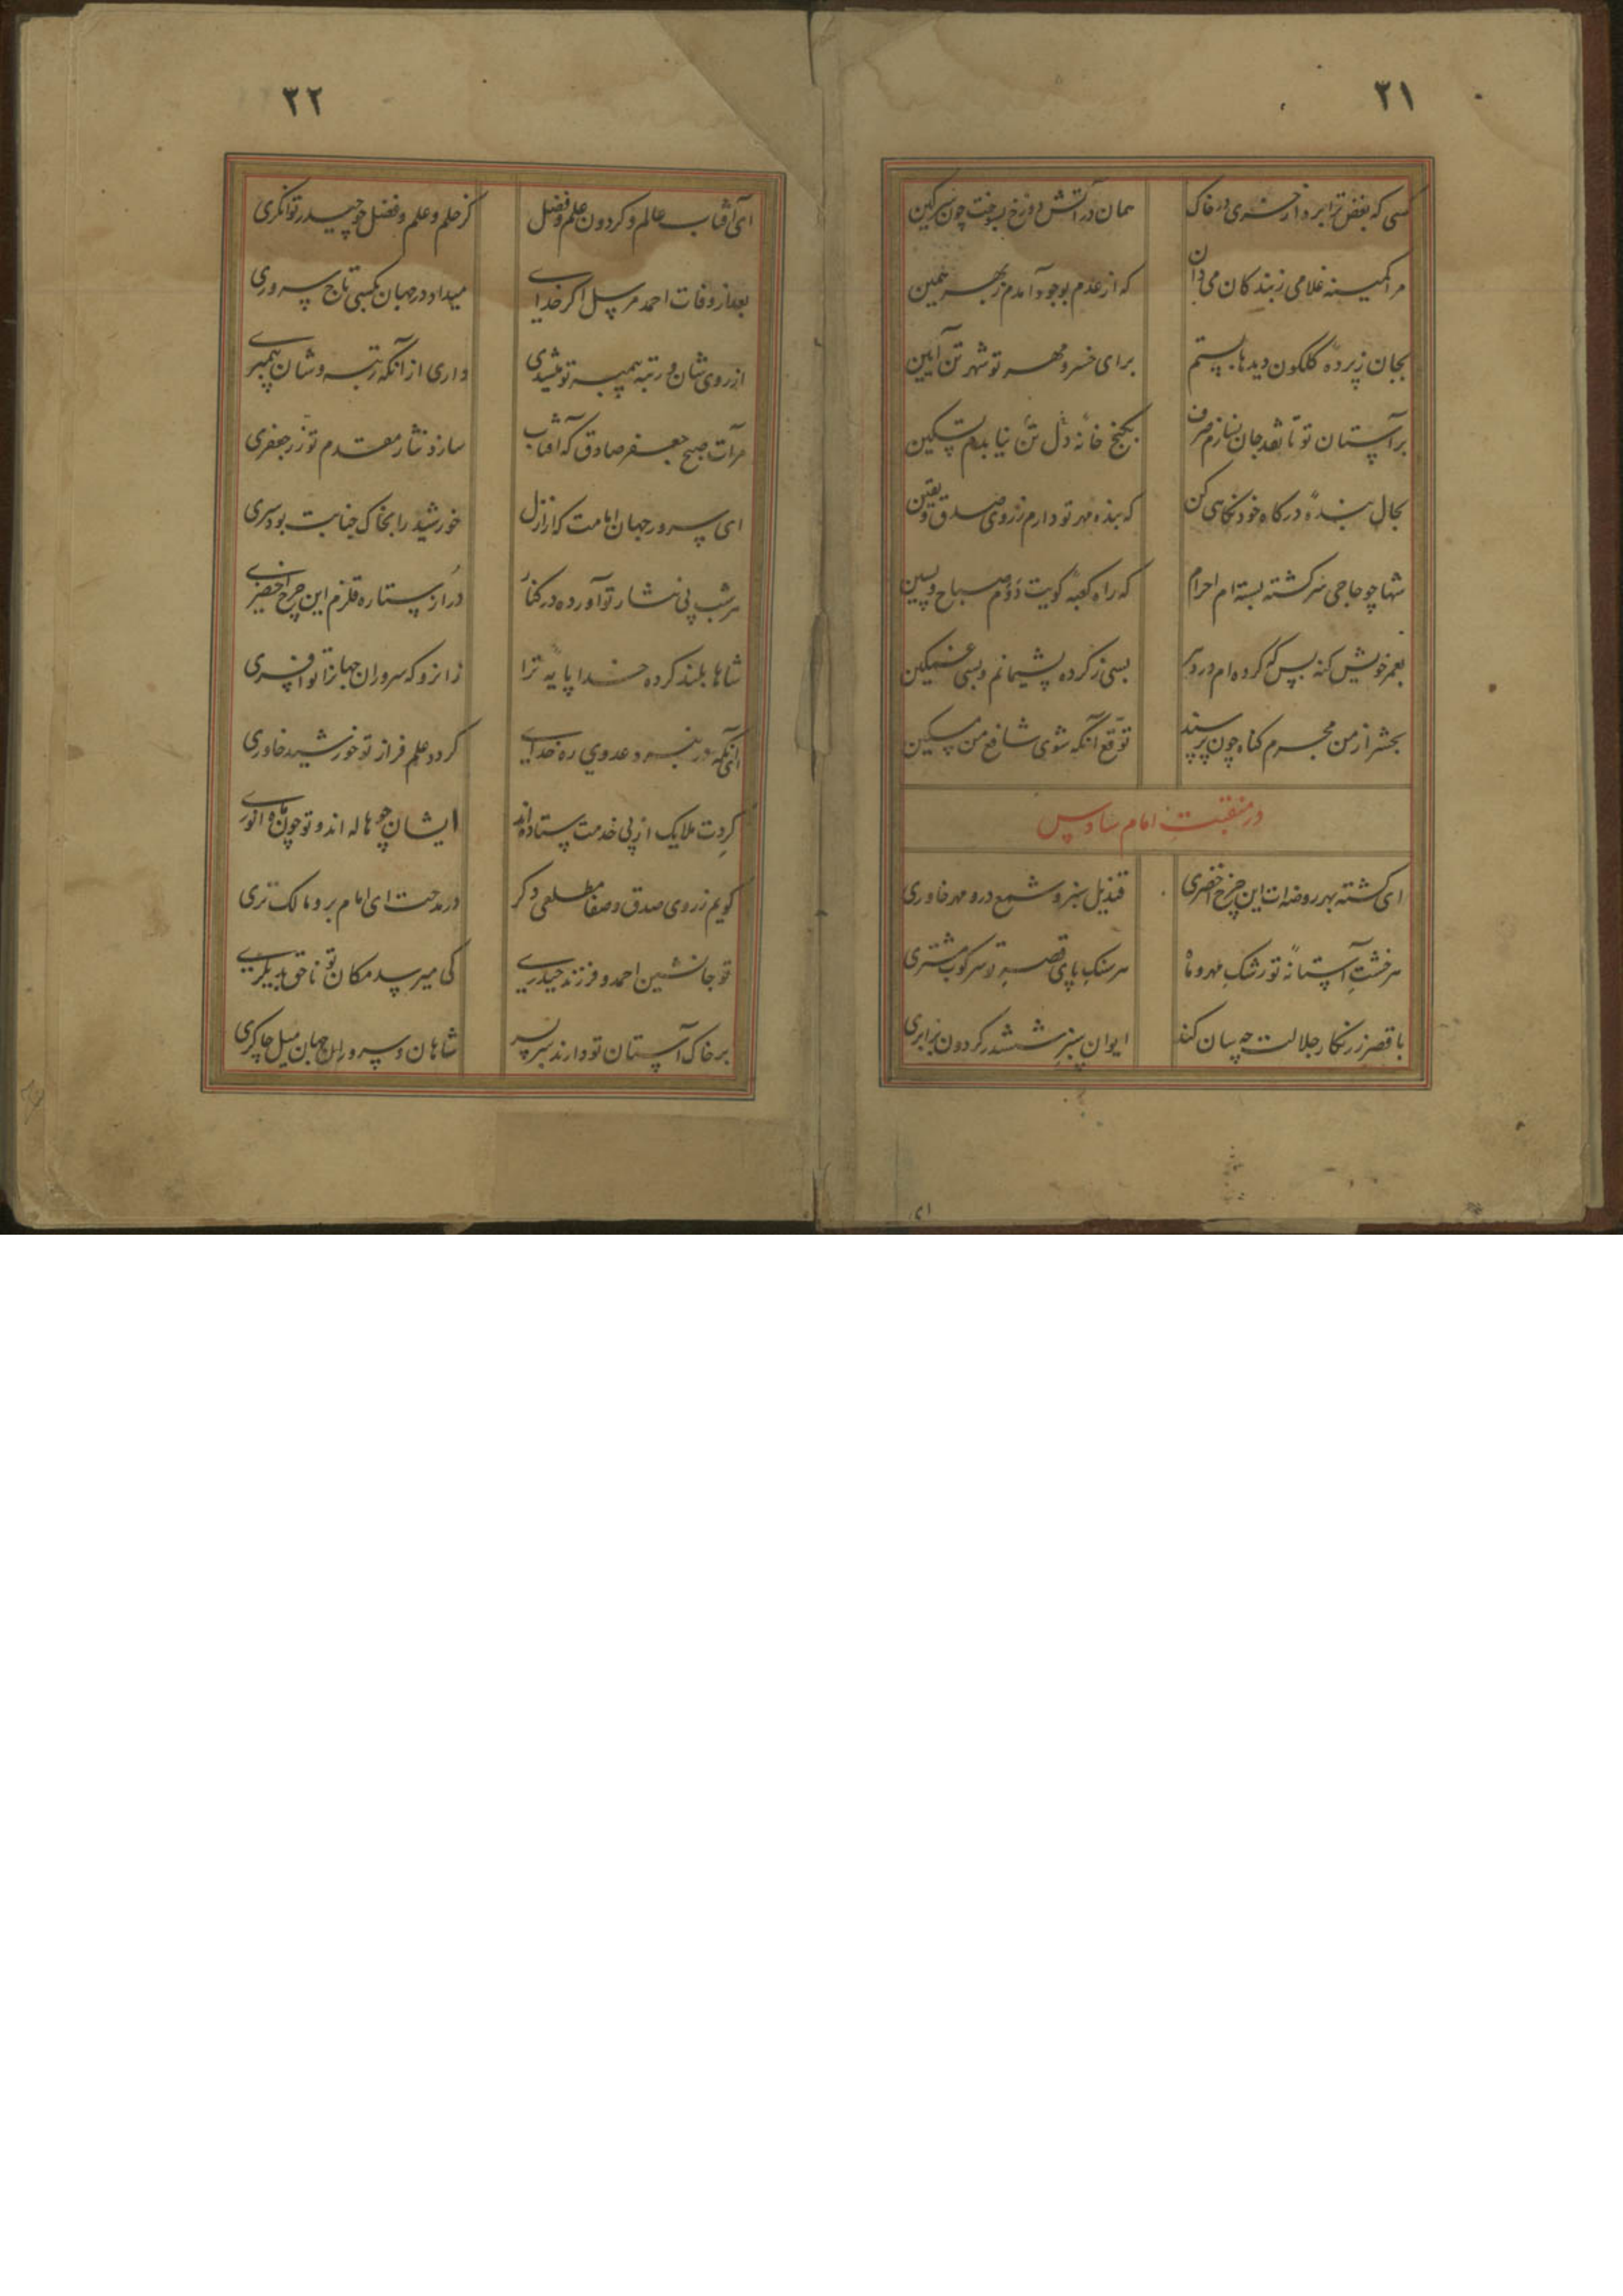 ۳۱
کسی که بغض ترا برد از خری در خاک همان در آتش دوزخ بسوخت چون سرکین
مرا کمینه غلامی ز بندکان می دان که از عدم بوجود آمدم ز بهر همین
بجان ز پردهٔ کلکون دیدها بستم برای خسرو مهر تو شهر تن آیین
بر آستان تو تا نقد جان نسازم صرف بکنج خانهٔ دل تن نیابدم تسکین
بحال بندهٔ درکاه خود نکاهی کن که بنده مهر تو دارم ز روی صدق و یقین
شها چو حاجی سرکشته بسته ام احرام که راه کعبهٔ کویت دوم صباح و پسین
بعمر خویش کنه بس که کرده ام در دهر بسی ز کرده پشیمانم و بسی غمکین
بحشر از من مجرم کناه چون پرسند توقع آنکه شوی شافع من مسکین
در منقبت امام سادس
ای کشته بهر روضه ات این چرخ اخضری قندیل سبز و شمع درو مهر خاوری
هر خشت آستانهٔ تو رشک مهر و ماه هر سنک پای قصر تو سرکوب مشتری
با قصر زرنکار جلالت چه سان کند ایوان سبز ششدر کردون برابری
۳۲
ای آفتاب عالم و کردون علم و فضل کز حلم و علم و فضل چو حیدر توانکری
بعد از وفات احمد مرسل اکر خدای میداد در جهان بکسی تاج سروری
از روی شان و رتبه پیمبر تو میشدی داری از آنکه رتبه و شان پیمبری
مرآت صبح جعفر صادق که آفتاب سازد نثار مقدم تو زر جعفری
ای سرور جهان امامت که از ازل خورشید را بخاک جنابت بود سری
هر شب پی نثار تو آورده در کنار در از ستاره قلزم این چرخ اخضری
شاها بلند کرده خدا پایه ترا زانرو که سروران جهانرا تو افسری
آنکه در نبرد عدوی ره خدای کردد علم فراز تو خورشید خاوری
کردت ملایک از پی خدمت ستاده اند ایشان چو هاله اند و تو چون ماه انوری
کویم ز روی صدق و صفا مطلعی دکر در مدحت ای امام بر و مالک تری
تو جانشین احمد و فرزند حیدری کی میرسد مکان تو ناحق بدیکری
بر خاک آستان تو دارند سر بسر شاهان و سروران جهان میل چاکری